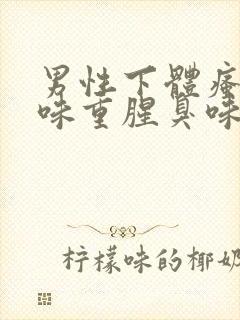 男性下體瘙
味重腥臭味
柠檬味的椰奶